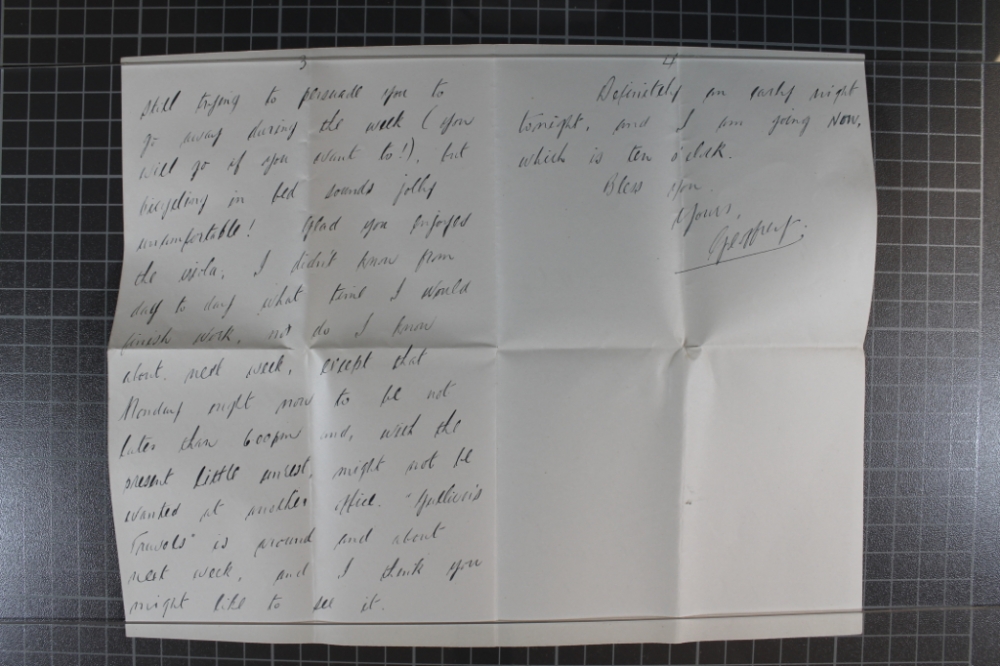 3
still trying to persuade you to
go away during the week (you
will go if you want to!), but
bicycling in bed sounds jolly
uncomfortable! Glad you enjoyed
the viola. I didn't know from
day to day what time I would
finish work, nor do I know
about next week, except that
Monday ought now to be not
later than 6 oopm and, with the
present little unrest, might not be
wanted at another office. "Gullivers
Travels" is around and about
next week, and I think you
might like to see it.
4
Definitely an early night
tonight, and I am going Now,
which is ten o'clock.
Bless you.
Yours,
Geoffrey.